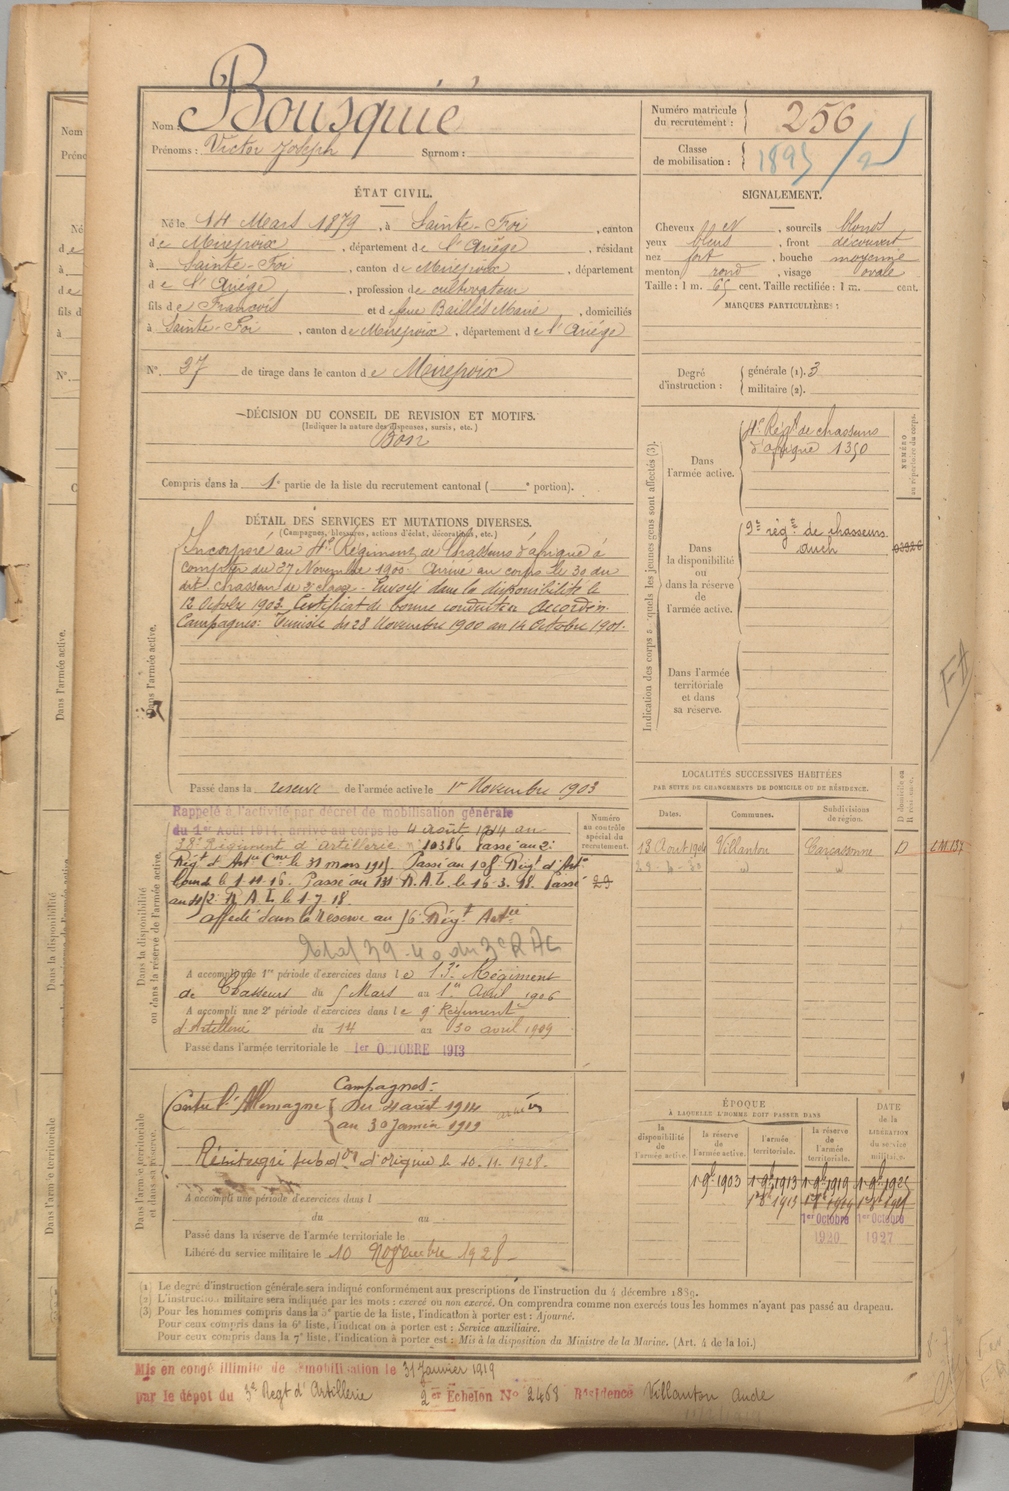 Nom : Bousquié
Prénoms : Victor Joseph Surnom :
Numéro matricule du recrutement : 256
Classe de mobilisation : 1895/2
ÉTAT CIVIL.
Né le 14 Mars 1879, à Sainte-Foi, canton
de Mirepoix, département de l'Ariège, résidant
à Sainte-Foi, canton de Mirepoix, département
de l'Ariège, profession de cultivateur
fils de François et de feue Baillès Marie, domiciliés
à Sainte-Foi, canton de Mirepoix, département de l'Ariège
N° 37 de tirage dans le canton de Mirepoix
SIGNALEMENT.
Cheveux et, sourcils blonds
yeux bleus, front découvert
nez fort, bouche moyenne
menton rond, visage ovale
Taille : 1 m. 65 cent. Taille rectifiée : 1 m. cent.
MARQUES PARTICULIÈRES :
Degré d'instruction : générale (1). 3
militaire (2).
DÉCISION DU CONSEIL DE REVISION ET MOTIFS.
(Indiquer la nature des dispenses, sursis, etc.)
Bon
Compris dans la 1e partie de la liste du recrutement cantonal ( e portion).
DÉTAIL DES SERVICES ET MUTATIONS DIVERSES.
(Campagnes, blessures, actions d'éclat, décorations, etc.)
Dans l'armée active.
Incorporé au 4e Régiment de Chasseurs d'afrique à
compter du 27 Novembre 1900. Arrivé au corps le 30 du
dit. chasseur de 2e classe. Envoyé dans la disponibilité le
12 Octobre 1903. Certificat de bonne conduite Accordé.
Campagnes : Tunisie du 28 Novembre 1900 au 14 Octobre 1901.
Passé dans la reserve de l'armée active le 1er Novembre 1903
Indication des corps auxquels les jeunes gens sont affectés (3).
NUMÉRO au répertoire du corps.
Dans l'armée active.
4e Régt de chasseurs
d'afrique 1350
Dans la disponibilité ou dans la réserve de l'armée active.
9e régt de chasseurs
auch
Dans l'armée territoriale et dans sa réserve.
Dans la disponibilité ou dans la réserve de l'armée active.
Numéro au contrôle spécial du recrutement.
Rappelé à l'activité par décret de mobilisation générale
du 1er Août 1914, arrivé au corps le 4 août 1914 au
38e Régiment d'artillerie n° 10386 Passé au 2e
Régt d'Artie Cne le 31 mars 1915 Passé au 108e Régt d'Arte
lourde le 1-11-16. Passé au 131 R.A.L. le 16-3-18. Passé
au 452e R.A.L. le 1-7-18.
affecté dans la Réserve au 56e Régt Artie
A accompli une 1re période d'exercices dans le 13e Régiment
de Chasseurs du 5 Mars au 1er Avril 1906
A accompli une 2e période d'exercices dans le 9e Régiment
d'Artillerie du 14 au 30 avril 1909
Passé dans l'armée territoriale le 1er OCTOBRE 1913
LOCALITÉS SUCCESSIVES HABITÉES
PAR SUITE DE CHANGEMENTS DE DOMICILE OU DE RÉSIDENCE.
Dates. Communes. Subdivisions de région. D domicile ou R résidence.
18 Août 1904 Villautou Carcassonne D
Dans l'armée territoriale et dans sa réserve.
Campagnes :
Contre l'Allemagne { Du 4 août 1914
au 30 Janvier 1919
Réintégré subdon d'origine le 10.11.1928.
A accompli une période d'exercices dans l
du au
Passé dans la réserve de l'armée territoriale le
Libéré du service militaire le 10 Novembre 1928
ÉPOQUE
À LAQUELLE L'HOMME DOIT PASSER DANS
la disponibilité de l'armée active. la réserve de l'armée active. l'armée territoriale. la réserve de l'armée territoriale. DATE de la LIBÉRATION du service militaire.
1 9b 1903 1 9b 1913 1 9b 1919 1 9b 1925
1er Octobre 1920 1er Octobre 1927
(1) Le degré d'instruction générale sera indiqué conformément aux prescriptions de l'instruction du 4 décembre 1889.
(2) L'instruction militaire sera indiquée par les mots : exercé ou non exercé. On comprendra comme non exercés tous les hommes n'ayant pas passé au drapeau.
(3) Pour les hommes compris dans la 5e partie de la liste, l'indication à porter est : Ajourné.
Pour ceux compris dans la 6e liste, l'indication à porter est : Service auxiliaire.
Pour ceux compris dans la 7e liste, l'indication à porter est : Mis à la disposition du Ministre de la Marine. (Art. 4 de la loi.)
Mis en congé illimité de démobilisation le 31 Janvier 1919
par le dépôt du 3e Regt d'Artillerie 2er Echelon N° 2468 Résidence Villautou Aude